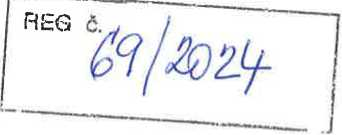 REG č.
69/2024